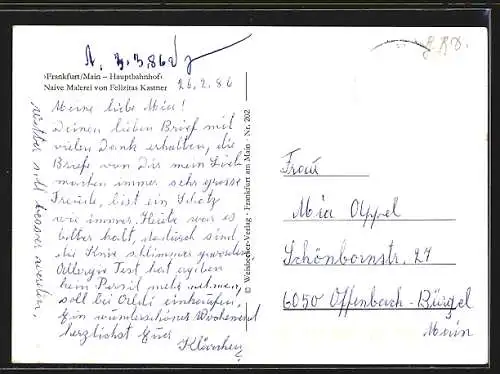 A. 3.3.86
›Frankfurt/Main – Hauptbahnhof‹
Naive Malerei von Felizitas Kastner
26.2.86
Meine liebe Mia!
Deinen lieben Brief mit
vielen Dank erhalten, die
Briefe von Dir mein Lieb
machen immer sehr grosse
Freude, bist ein Schatz
wie immer. Heute war es
bitter kalt, dadurch sind
die Knie schlimmer geworden
Allergie Test hat ergeben
kein Persil mehr nehmen,
soll bei Orldi einkaufen,
Ein wunderschönes Wochenend
herzlichst Eure
Klärchen
soll besser werden,
© Weinbecker-Verlag · Frankfurt am Main · Nr. 202
Frau
Mia Appel
Schönbornstr. 27
6050 Offenbach-Bürgel
Main